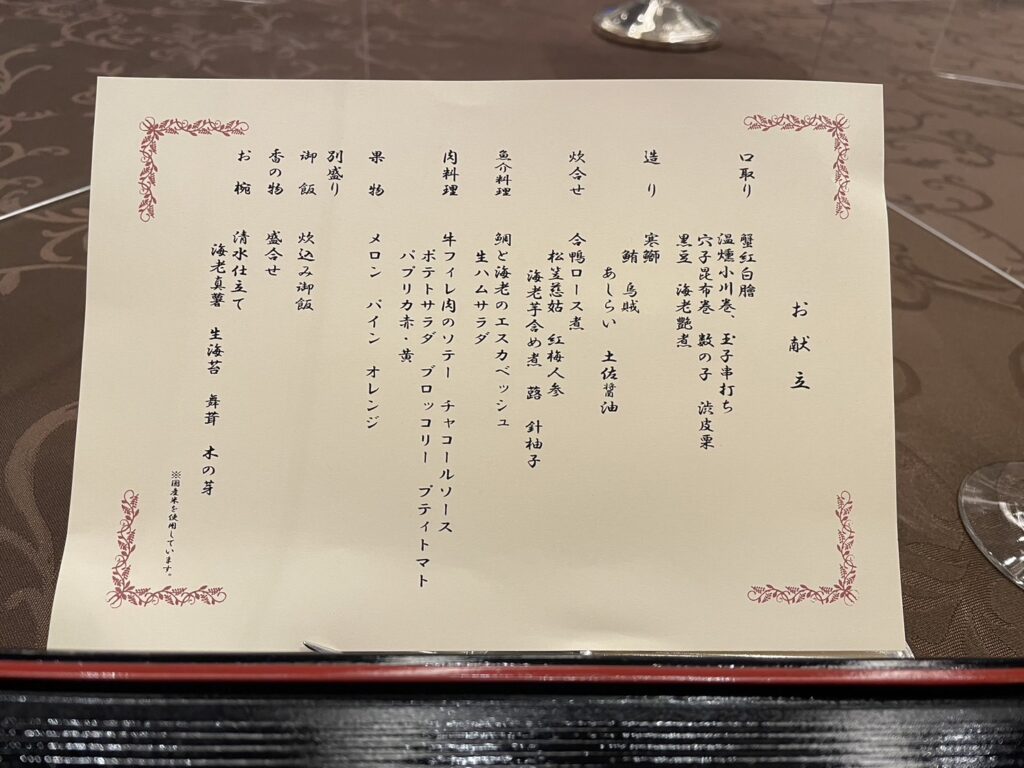 お献立
口取り　蟹紅白膾
温燻小川巻、玉子串打ち
穴子昆布巻　数の子　渋皮栗
黒豆　海老艶煮
造り　寒鰤
鮪　烏賊
あしらい　土佐醤油
炊合せ　合鴨ロース煮
松笠慈姑　紅梅人参
海老芋含め煮　蕗　針柚子
魚介料理　鯛と海老のエスカベッシュ
生ハムサラダ
肉料理　牛フィレ肉のソテー　チャコールソース
ポテトサラダ　ブロッコリー　プティトマト
パプリカ赤・黄
果物　メロン　パイン　オレンジ
別盛り
御飯　炊込み御飯
香の物　盛合せ
お椀　清水仕立て
海老真薯　生海苔　舞茸　木の芽
※国産米を使用しています。